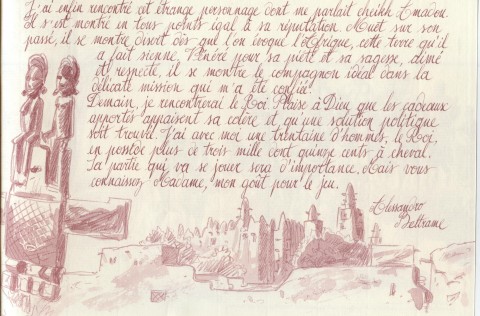 J'ai enfin rencontré cet étrange personnage dont me parlait cheikh Amadou.
Il s'est montré en tous points égal à sa réputation. Muet sur son
passé, il se montre disert dès que l'on évoque l'Afrique, cette terre qu'il
a fait sienne. Vénéré pour sa piété et sa sagesse, aimé
et respecté, il se montre le compagnon idéal dans la
délicate mission qui m'a été confiée.
Demain, je rencontrerai le Roi. Plaise à Dieu que les cadeaux
apportés apaisent sa colère et qu'une solution politique
soit trouvée. J'ai avec moi une trentaine d'hommes, le Roi,
en possède plus de trois mille dont quinze cents à cheval.
La partie qui va se jouer sera d'importance. Mais vous
connaissez Madame, mon goût pour le jeu.
Alessandro
Beltrame